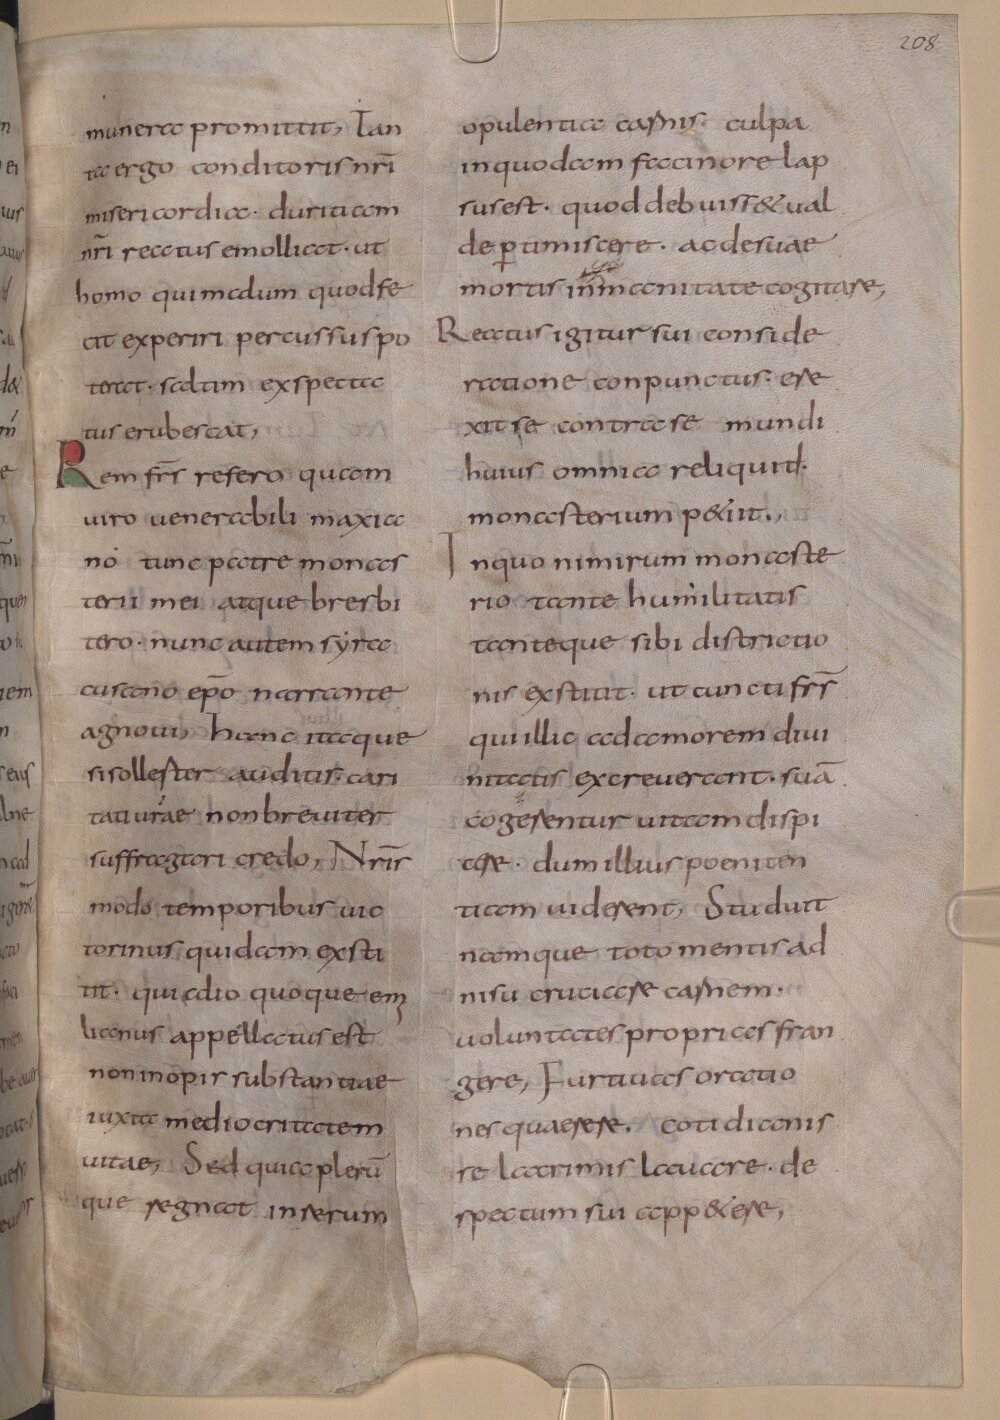 208
munera promittit, Tan
ta ergo conditoris nr̄i
misericordia· duritiam
nr̄i reatus emolliat· ut
homo qui malum quod fe
cit experiri percussus po
terat· saltim expecta
tus erubescat,
Rem fr̄s refero quam
uiro uenerabili maxia
nó tunc patre monas
terii mei atque bresbi
tero· nunc autem syra
cusano ep̄o narrante
agnoui, hanc itaque
si sollester auditis· cari
tati urae non breuiter
suffragari credo, Nr̄is
modo temporibus uic
torinus quidam exsti
tit· qui alio quoque em
lianus appellatus est
non inopis substantiae
iuxta mediocritatem
uitae, Sed quia plerū
que regnat in rerum
opulentia carnis· culpa
in quodam facinore lap
sus est· quod debuiss& ual
de ptimiscere· ac de suae
mortis inmanitate cogitare,
Reatus igitur sui conside
ratione conpunctus· ere
xit se contra se mundi
huius omnia reliquid·
monasterium p&iit·,
In quo nimirum monaste
rio tante humilitatis
tanteque sibi districtio
nis exstitit· ut cuncti fr̄s
qui illic ad amorem diui
nitatis excreuerant· suā
cogerentur uitam dispi
cere· dum illius poeniten
tiam uiderent, Studuit
namque toto mentis ad
nisu cruciare carnem·
uoluntates proprias fran
gere, Furtiuas oratio
nes quaerere· cotidianis
se lacrimis lauare· de
spectum sui app&ere,